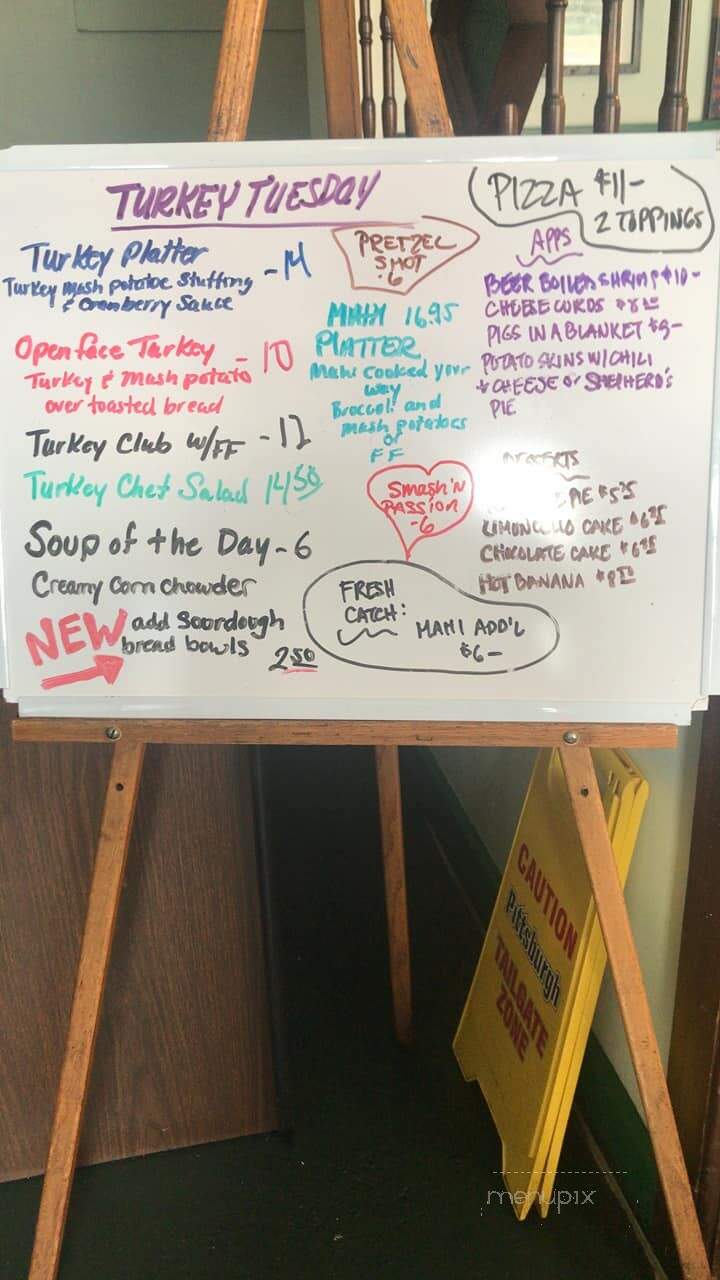 TURKEY TUESDAY
Turkey Platter - 14
Turkey mash potatoe Stuffing
& Cranberry Sauce
Open face Turkey - 10
Turkey & Mash potato
over toasted bread
Turkey Club w/FF - 12
Turkey Chef Salad 14 50
Soup of the Day - 6
Creamy Corn chowder
NEW add Sourdough
bread bowls
2 50
PRETZEL
SHOT
6
MAHI 16.95
PLATTER
Mahi cooked your
way
Broccoli and
mash potatoes
or
FF
Smash'n
PASSION
-6
FRESH
CATCH:
MAHI ADD'L
$6-
PIZZA $11-
2 TOPPINGS
APPS
BEER BOILED SHRIMP $10-
CHEESE CURDS $8
PIGS IN A BLANKET $9-
POTATO SKINS W/CHILI
& CHEESE or SHEPHERD'S
PIE
DESSERTS
PIE $5.25
LIMONCELLO CAKE $6.25
CHOCOLATE CAKE $6.25
HOT BANANA $8
CAUTION
Pittsburgh
TAILGATE
ZONE
menupix